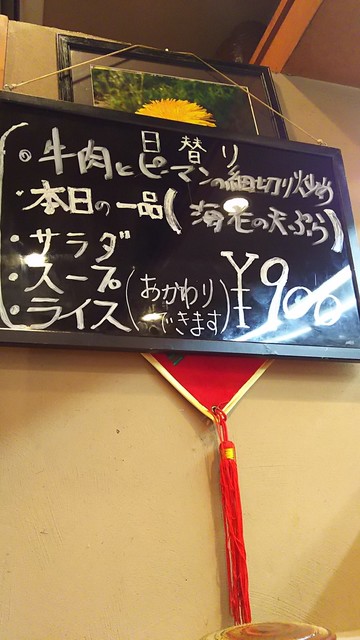 日替り
◎牛肉とピーマンの細切り炒め
・本日の一品(海老の天ぷら)
・サラダ
・スープ
・ライス(おかわりできます)
¥900